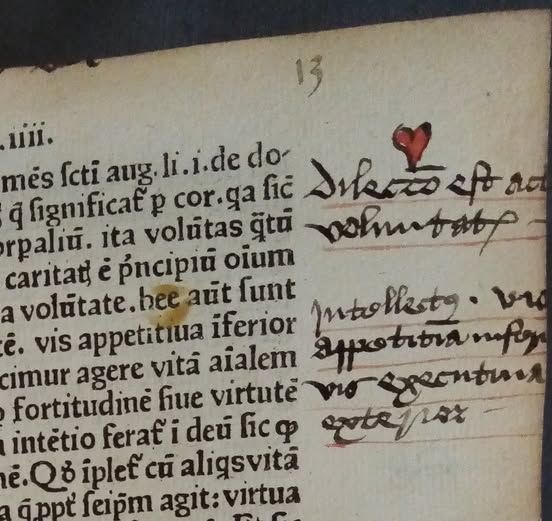 13
.iiii.
mēs sctī aug. li. i. de do-
q̄ significat ꝑ cor. qa sic̄
orꝑaliū. ita volūtas q̄tū
caritat ē pͥncipiū oīum
a volūtate. hee aūt sunt
cē. vis appetitiua īferior
cimur agere vitā aīalem
fortitudinē siue virtutē
intētio ferat ī deū sic ꝙ
nē. Qđ īplet cū aliqs vitā
q̄ ꝓpt seiꝑm agit: virtua
Dilectō est act
voluntat
Intellectꝰ. vis
appetitīa infe
vis executiua
exterior